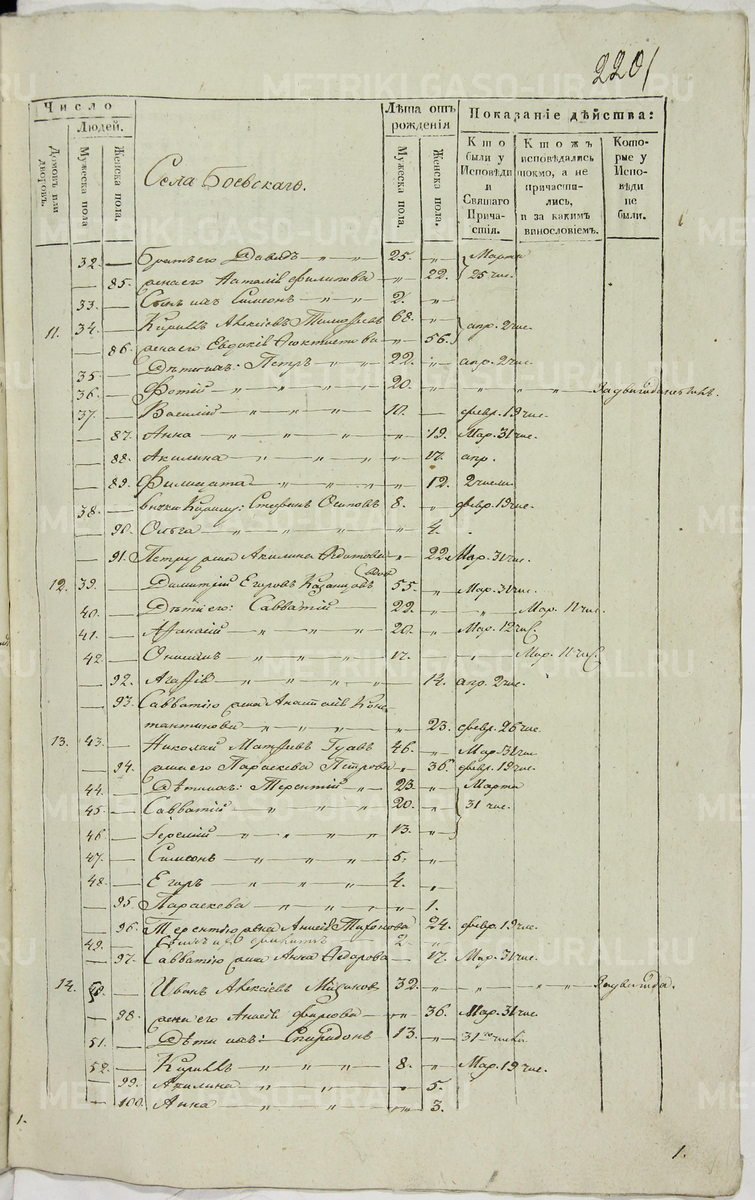 METRIKI.GASO-URAL.RU
220
Число
Людей.
Домовъ или дворовъ.
Мужеска пола
Женска пола.
Села Боевскаго.
Лѣта отъ рожденія
Мужеска пола.
Женска пола.
Показаніе дѣйства:
Кто были у Исповѣди и Святаго Причастія.
Ктожъ исповѣдались токмо, а не причастились, и за какимъ винословіемъ.
Которые у Исповѣди не были.
32. Братъ его Давидъ 25. Марта
85. жена его Наталія Филипова 22. 25 чис.
33. Сынъ ихъ Симеонъ 2.
11. 34. Кириллъ Алексѣевъ 68. апр. 2 чис.
86. жена его Евдокія 56.
35. Дѣти ихъ: Петръ 22. апр. 2 чис.
36. Фотій 20.
37. Василій 10. февр. 19 чис.
87. Анна 19. Мар. 31 чис.
88. Акилина 17. апр.
89. Филицата 12. 2 числа
38. внуки Кирилу: Стефанъ Осиповъ 8. февр. 19 чис.
90. Ольга 4.
91. Петру жена Акилина Федотова 22. Мар. 31 чис.
12. 39. Димитрій Егоровъ Казанцовъ вдовъ 55. Мар. 31 чис.
40. Дѣти его: Савватій 22. Мар. 11 чис.
41. Афанасій 20. Мар. 12 чис.
42. Онисимъ 17. Мар. 11 чис.
92. Агафія 14. апр. 2 чис.
93. Савватію жена Анастасія Конс-
тантинова 23. февр. 26 чис.
13. 43. Николай Матфѣевъ 46. Мар. 31 чис.
94. жена его Параскева Петрова 36. февр. 19 чис.
44. Дѣти ихъ: Терентій 23. Марта
45. Савватій 20. 31 чис.
46. Іеремій 13.
47. Симеонъ 5.
48. Егоръ 4.
95. Параскева 1.
96. Терентію жена Анисія Тихонова 24. февр. 19 чис.
49. Сынъ ихъ 2
97. Савватію жена Анна Федорова 17. Мар. 31 чис.
14. 50. Иванъ Алексѣевъ 32.
98. жена его Анисія 36. Мар. 31 чис.
51. Дѣти ихъ: Спиридонъ 13. 31го числа
52. Кириллъ 8. Мар. 19 чис.
99. Акилина 5.
100. Анна 3.
1.
1.